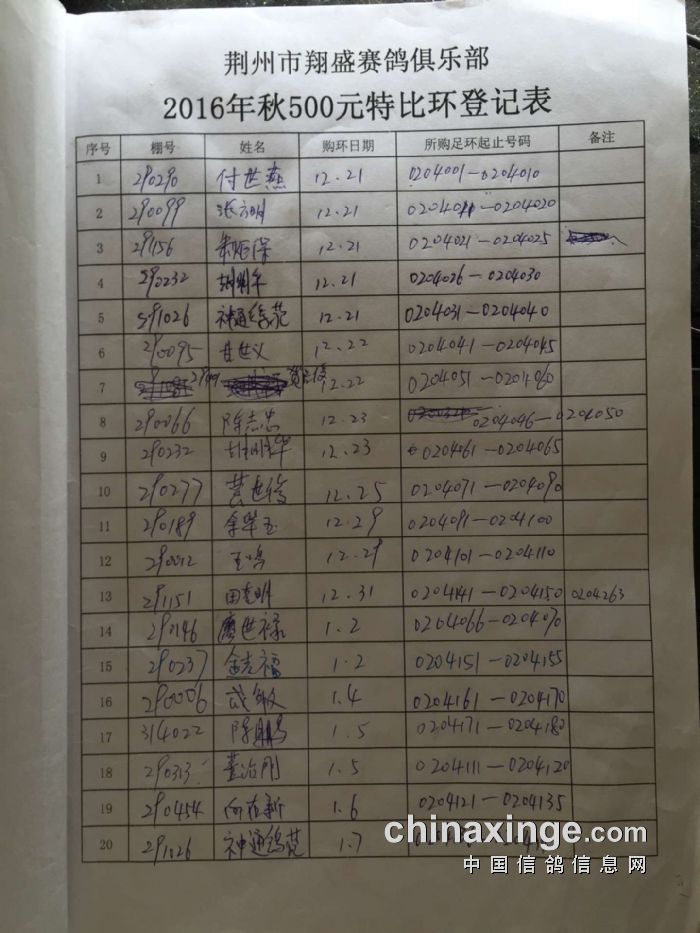 荆州市翔盛赛鸽俱乐部
2016年秋500元特比环登记表
序号 棚号 姓名 购环日期 所购足环起止号码 备注
1 290290 付世燕 12.21 0204001—0204010
2 290099 张 12.21 0204011—0204020
3 291156 12.21 0204021—0204025
4 290232 12.21 0204026—0204030
5 291026 神通鸽苑 12.21 0204031—0204040
6 290095 甘世义 12.22 0204041—0204045
7 12.22 0204051—0204060
8 290066 陈志忠 12.23 0204046—0204050
9 290232 12.23 0204061—0204065
10 290277 12.25 0204071—0204090
11 290189 李华玉 12.29 0204091—0204100
12 290012 12.29 0204101—0204110
13 291151 田 12.31 0204141—0204150 0204263
14 290146 廖世禄 1.2 0204066—0204070
15 290237 金志福 1.2 0204151—0204155
16 290006 1.4 0204161—0204170
17 314022 陈鹏 1.5 0204171—0204180
18 290313 董治刚 1.5 0204111—0204120
19 290454 向在新 1.6 0204121—0204135
20 291026 神通鸽苑 1.7
chinaxinge.com
中国信鸽信息网